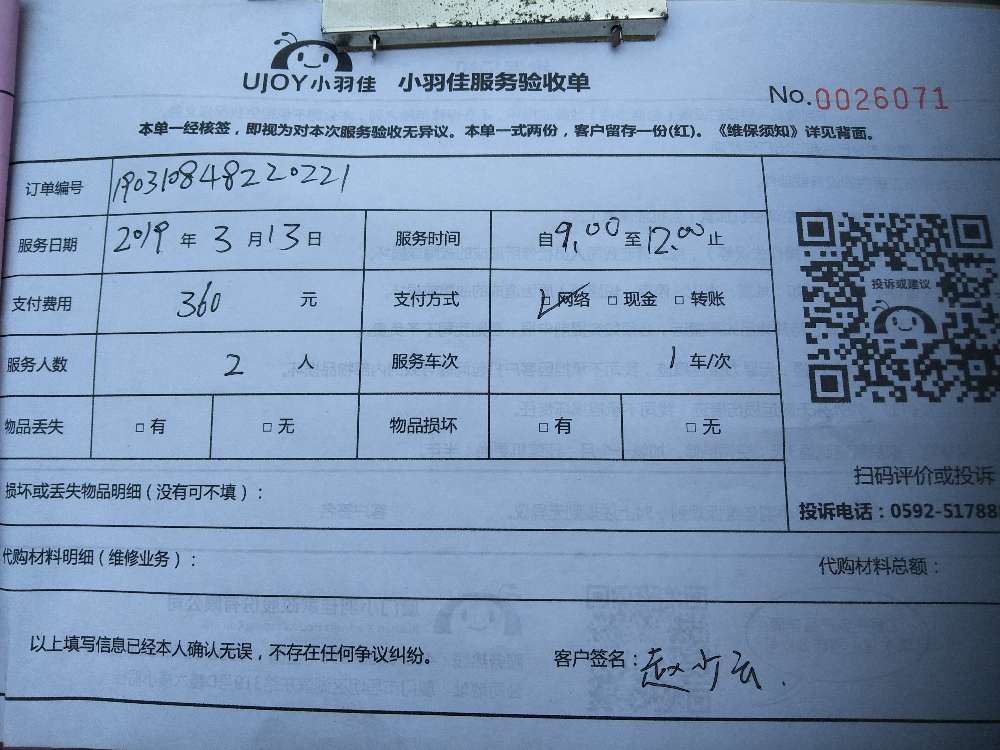 UJOY小羽佳 小羽佳服务验收单
No.0026071
本单一经核签，即视为对本次服务验收无异议。本单一式两份，客户留存一份(红)。《维保须知》详见背面。
订单编号 190310848220221
服务日期 2019年3月13日 服务时间 自9:00至12:00止
投诉或建议
支付费用 360元 支付方式 ☑网络 □现金 □转账
服务人数 2人 服务车次 1车/次
物品丢失 □有 □无 物品损坏 □有 □无
扫码评价或投诉
损坏或丢失物品明细（没有可不填）：
投诉电话：0592-51788
代购材料明细（维修业务）： 代购材料总额：
以上填写信息已经本人确认无误，不存在任何争议纠纷。 客户签名：赵少云